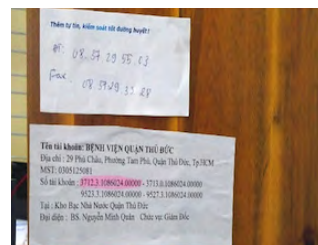 Thêm tự tin, kiểm soát tốt đường huyết !
ĐT: 08. 37 29 55 03
Fax: 08.3729 35 28
Tên tài khoản: BỆNH VIỆN QUẬN THỦ ĐỨC
Địa chỉ : 29 Phú Châu, Phường Tam Phú, Quận Thủ Đức, Tp.HCM
MST: 0305125081
Số tài khoản : 3712.3.1086024.00000 - 3713.0.1086024.00000
9523.3.1086024.00000 - 9527.3.1086024.00000
Tại : Kho Bạc Nhà Nước Quận Thủ Đức
Đại diện : BS. Nguyễn Minh Quân Chức vụ: Giám Đốc